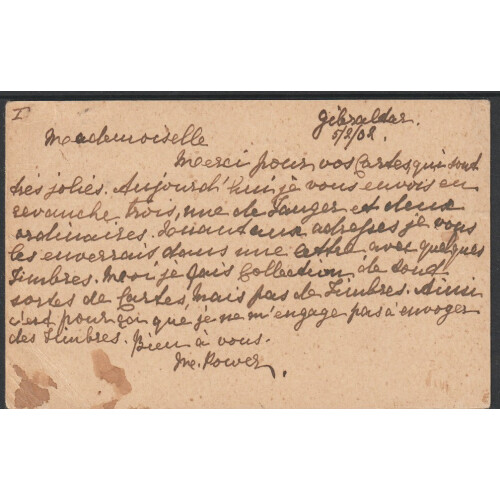 I
Gibraltar.
5/2/02.
Mademoiselle
Merci pour vos Cartes qui sont
très jolies. Aujourd'hui je vous envois en
revanche trois, une de Tanger et deux
ordinaires. Quant aux adresses je vous
les enverrais dans une lettre avec quelques
Timbres. Moi je fais Collection de tout
sortes de Cartes, mais pas de Timbres. Ainsi
c'est pourquoi que je ne m'engage pas à envoyer
des Timbres. Bien à vous.
Power.